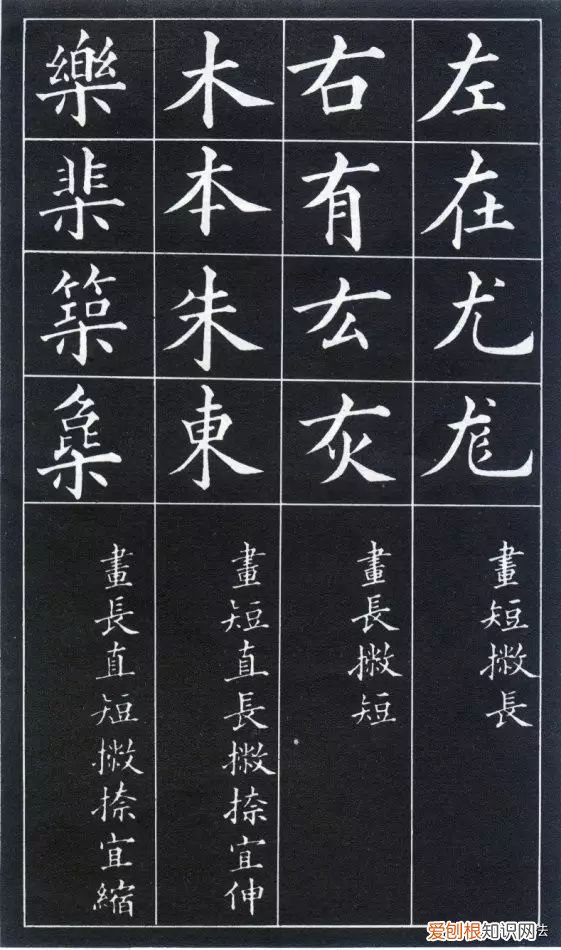 左在尤尨
畫短撇長
右有厷灰
畫長撇短
木本朱東
畫短直長撇捺宜伸
樂棐
畫長直短撇捺宜縮
爱刨根知识网法